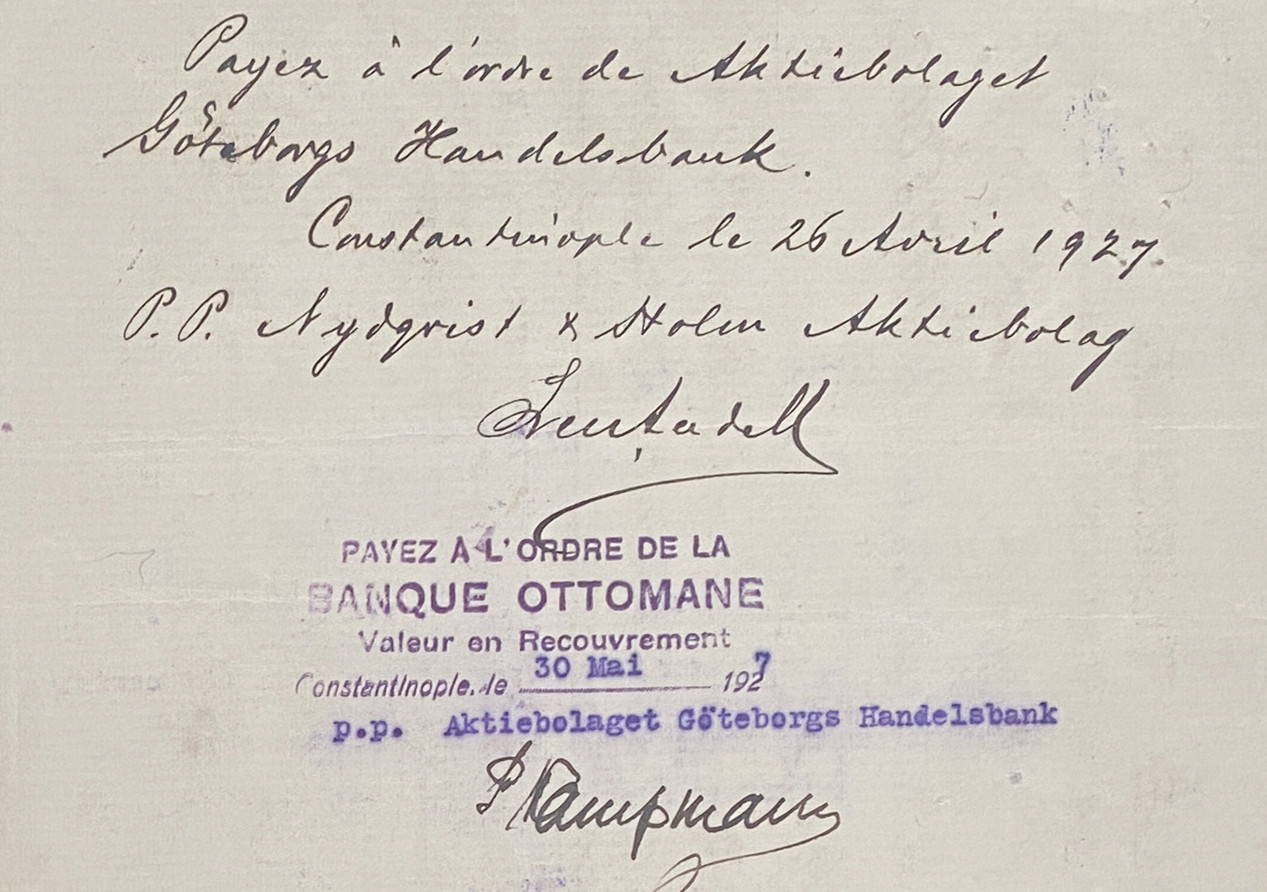 Payez à l'ordre de Aktiebolaget
Göteborgs Handelsbank.
Constantinople le 26 Avril 1927.
P.P. Nydqvist & Holm Aktiebolag
PAYEZ A L'ORDRE DE LA
BANQUE OTTOMANE
Valeur en Recouvrement
Constantinople, le 30 Mai 1927
p.p. Aktiebolaget Göteborgs Handelsbank
Kampmann